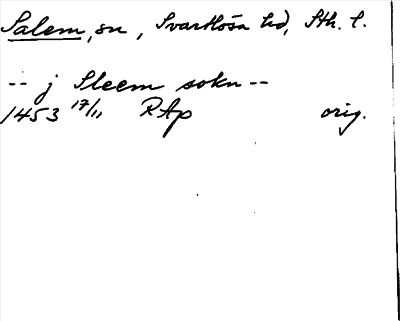 Salem, sn, Svartlösa hd, Sth. l.
-- j Sleem sokn --
1453 17/11 RAp orig.